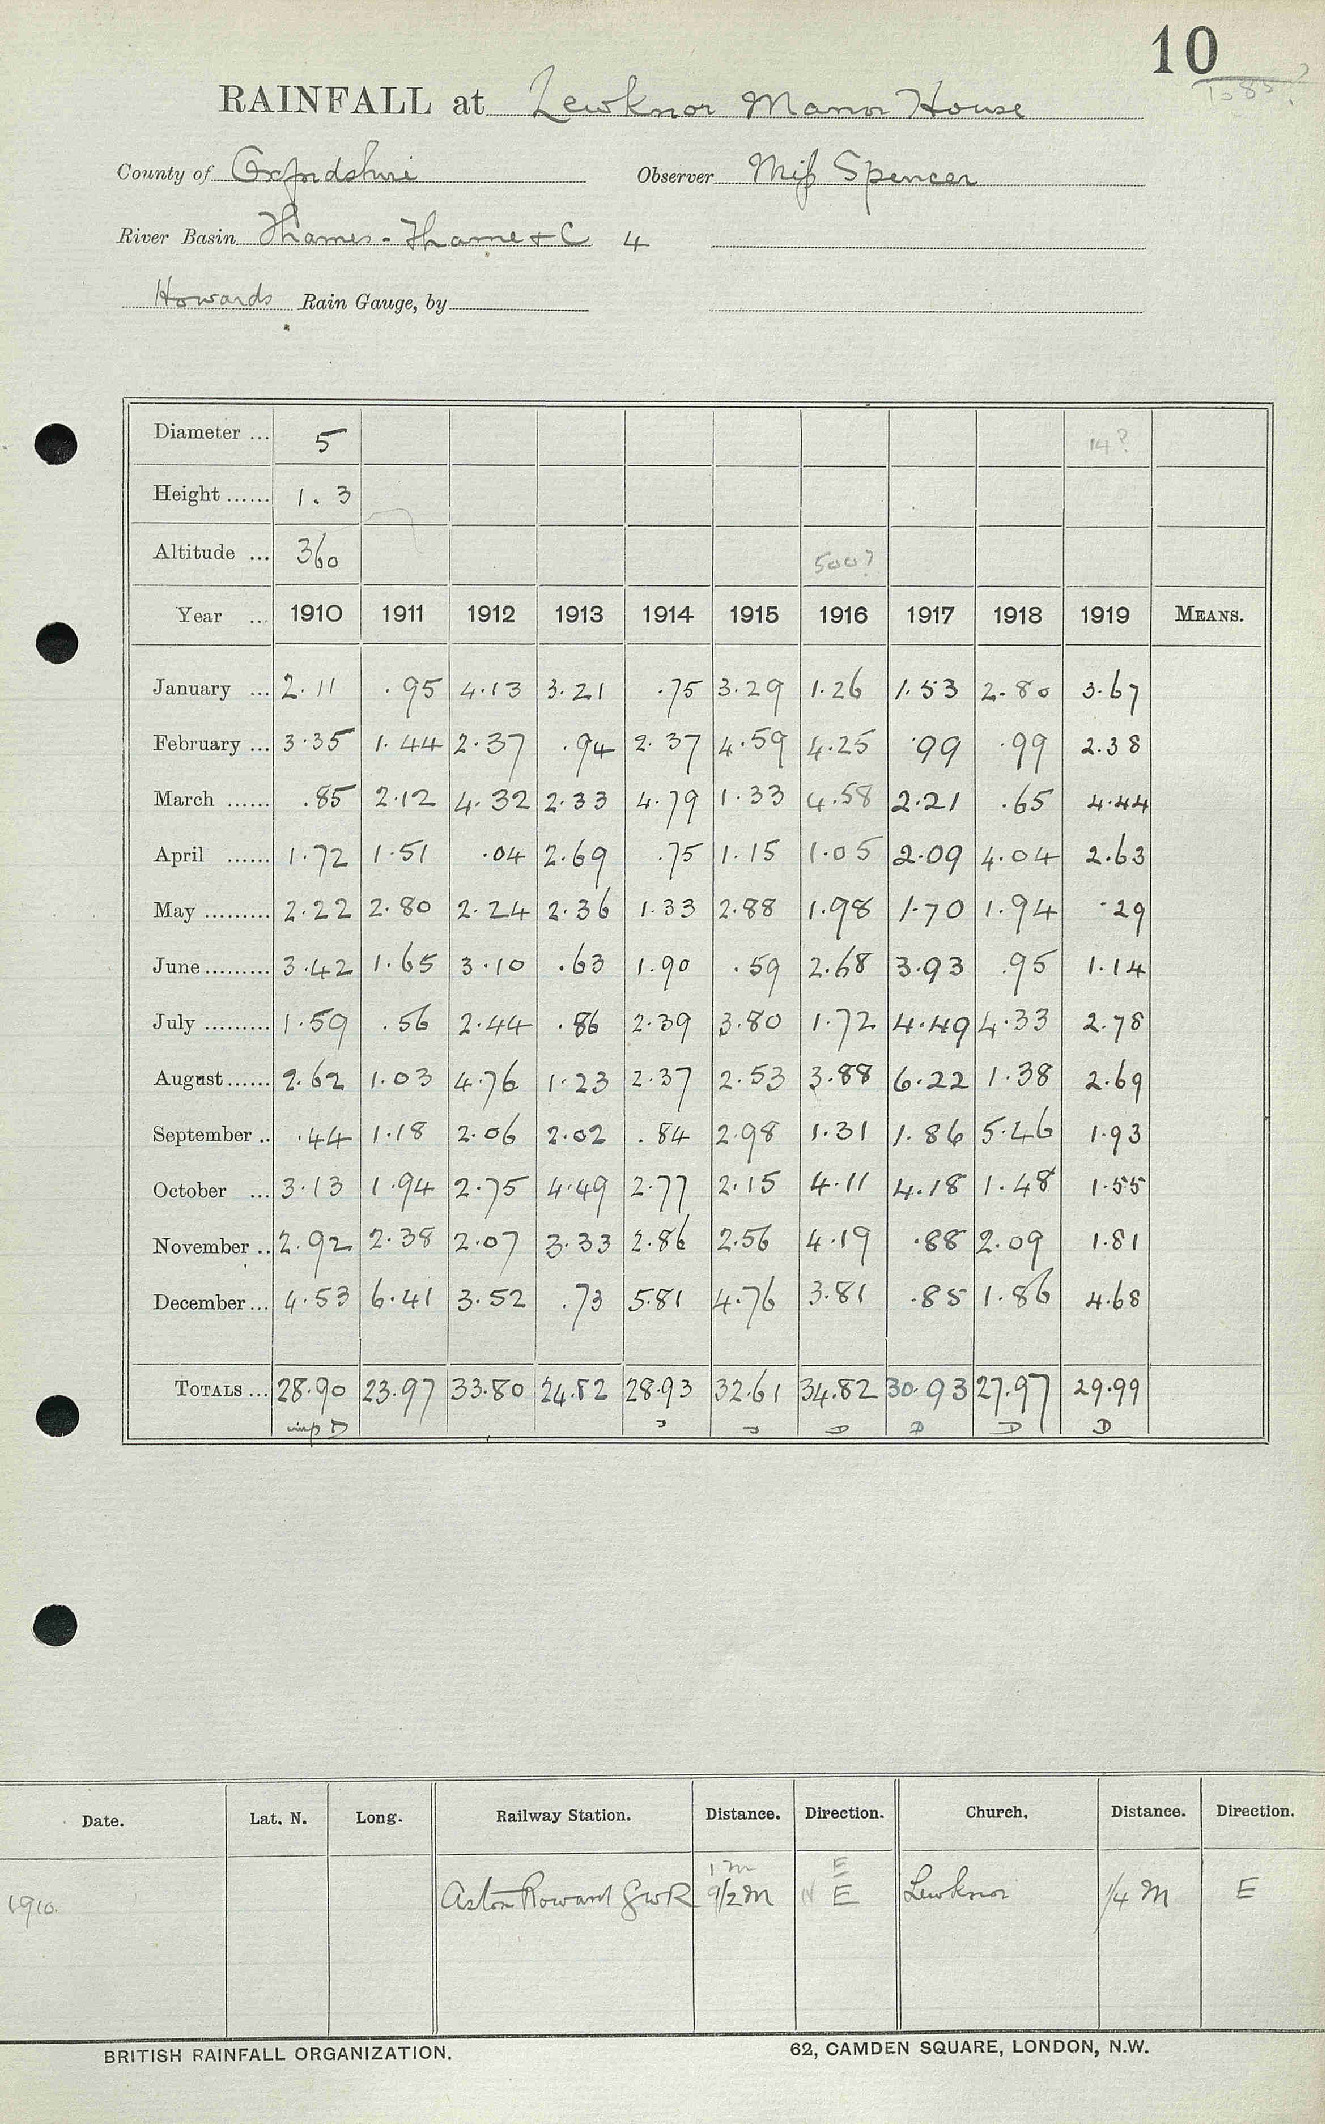 10
RAINFALL at Lewknor Manor House
County of Oxfordshire Observer Miss Spencer
River Basin Thames - Thame + C 4
Howards Rain Gauge, by
Diameter ... 5 14?
Height ...... 1.3
Altitude ... 360 500?
Year ... 1910 1911 1912 1913 1914 1915 1916 1917 1918 1919 MEANS.
January ... 2.11 .95 4.13 3.21 .75 3.29 1.26 1.53 2.80 3.67
February ... 3.35 1.44 2.37 .94 2.37 4.59 4.25 .99 .99 2.38
March ...... .85 2.12 4.32 2.33 4.79 1.33 4.58 2.21 .65 4.44
April ...... 1.72 1.51 .04 2.69 .75 1.15 1.05 2.09 4.04 2.63
May ......... 2.22 2.80 2.24 2.36 1.33 2.88 1.98 1.70 1.94 .29
June ......... 3.42 1.65 3.10 .63 1.90 .59 2.68 3.93 .95 1.14
July ......... 1.59 .56 2.44 .86 2.39 3.80 1.72 4.49 4.33 2.78
August ...... 2.62 1.03 4.76 1.23 2.37 2.53 3.88 6.22 1.38 2.69
September .. .44 1.18 2.06 2.02 .84 2.98 1.31 1.86 5.46 1.93
October ... 3.13 1.94 2.75 4.49 2.77 2.15 4.11 4.18 1.48 1.55
November .. 2.92 2.38 2.07 3.33 2.86 2.56 4.19 .88 2.09 1.81
December ... 4.53 6.41 3.52 .73 5.81 4.76 3.81 .85 1.86 4.68
TOTALS ... 28.90 23.97 33.80 24.82 28.93 32.61 34.82 30.93 27.97 29.99
D D D D D
Date. Lat. N. Long. Railway Station. Distance. Direction. Church. Distance. Direction.
1 m E
1910. Aston Rowant GWR 9/2 M E Lewknor 1/4 M E
BRITISH RAINFALL ORGANIZATION. 62, CAMDEN SQUARE, LONDON, N.W.